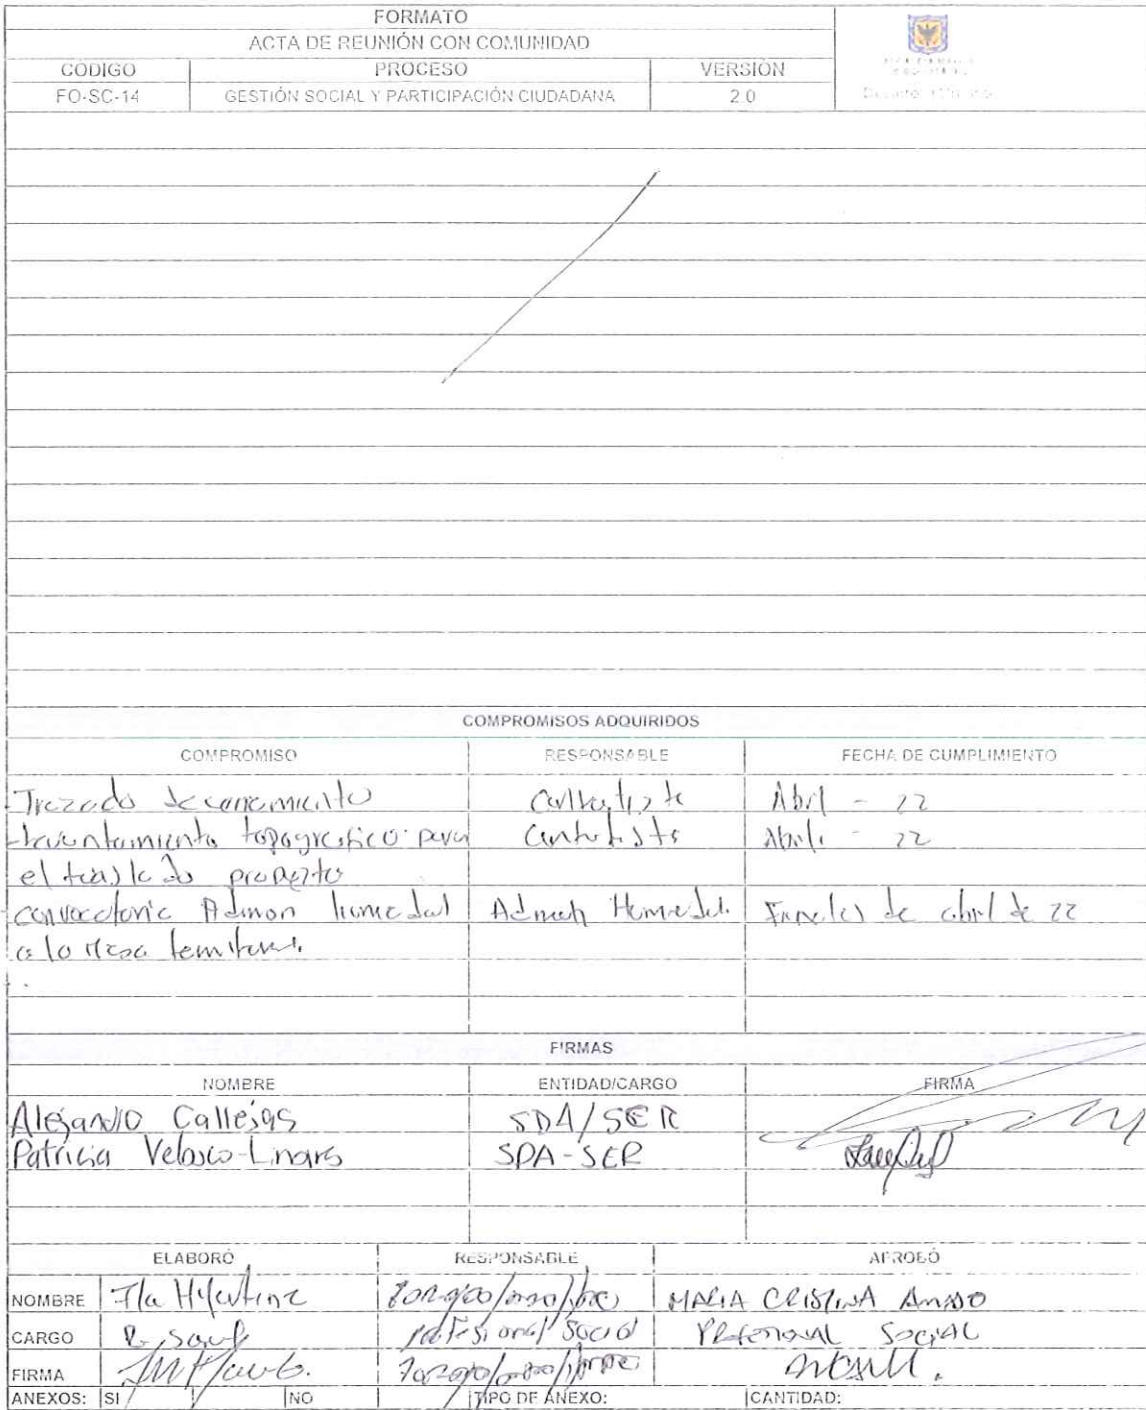 FORMATO
ACTA DE REUNIÓN CON COMUNIDAD
CÓDIGO PROCESO VERSIÓN
FO-SC-14 GESTIÓN SOCIAL Y PARTICIPACIÓN CIUDADANA 2.0
COMPROMISOS ADQUIRIDOS
COMPROMISO RESPONSABLE FECHA DE CUMPLIMIENTO
Trazado de cerramiento Contratista Abril - 22
topografico para Contratista Abril - 22
el traslado
convocatoria Admon humedal Admon Humedal Finales de abril de 22
a la mesa territorial.
FIRMAS
NOMBRE ENTIDAD/CARGO FIRMA
Alejandro Callejas SDA/SER
Patricia Velasco-Linares SDA-SER
ELABORÓ RESPONSABLE APROBÓ
NOMBRE MARIA CRISTINA
CARGO Profesional Social Profesional SOCIAL
FIRMA
ANEXOS: SI NO TIPO DE ANEXO: CANTIDAD: